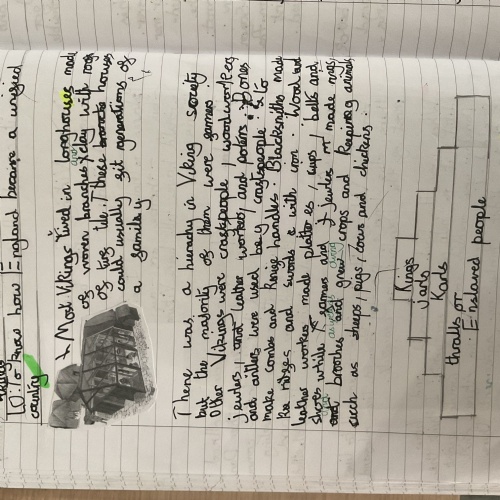 W:lo know how England became a unified
country
→ Most Vikings lived in longhouses made
of woven branches and clay with roofs
of turf. These houses
could usually fit generations of
a family.
There was a hierarchy in Viking society
but the majority of them were farmers.
Other Vikings were craftspeople, woodworkers
jewelers, and leather workers, and potters. Bones
and antlers were used by craftspeople to
make combs and knife handles. Blacksmiths made
swords with iron. Wood and
leather workers made platters, cups, belts and
shoes while jewelers made rings
and broaches and farmers grew crops and keeping animals
such as sheeps, pigs, cows and chickens.
Kings
Jarls
Karls
thralls or
Enslaved people